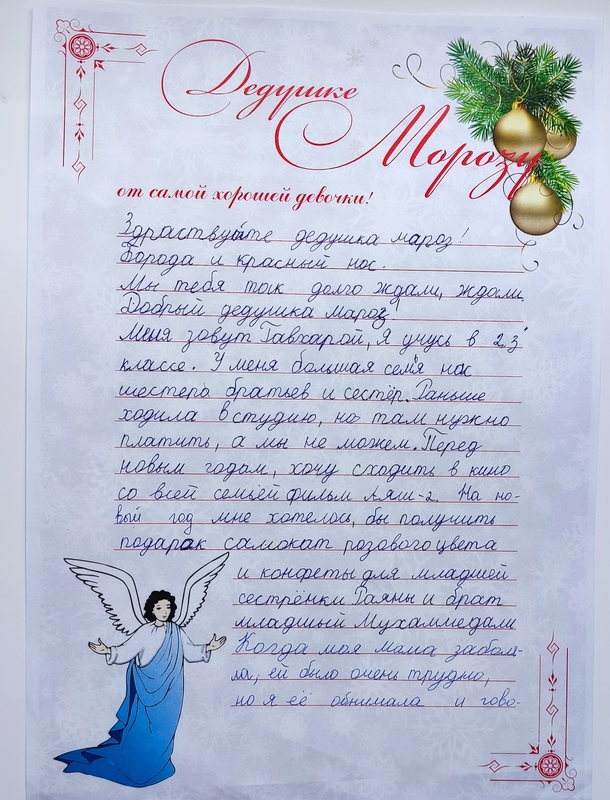 Дедушке
Морозу
от самой хорошей девочки!
Здраствуйте дедушка мароз!
Борода и красный нос.
Мы тебя так долго ждали, ждали
Добрый дедушка Мароз!
Меня зовут Гавхарой, Я учусь в 2,3"
классе. У меня большая семя нас
шестеро братьев и сестёр. Раньше
ходила в студию, но там нужно
платить, а мы не можем. Перед
новым годам, хочу сходить в кино
со всей семьей фильм Аяш-2. На но-
вый год мне хотелось, бы получить
подарак самокат розового цвета
и конфеты для младшей
сестрёнки Раяны и брат
младший Мухаммедали
Когда моя мама заболе-
ла, ей было очень трудно,
но я её обнимала и гово-